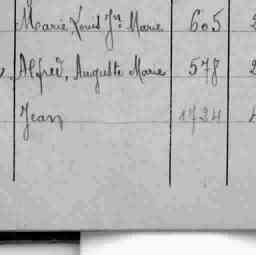 Marie, Louis Jn Marie 605 2
Alfred, Auguste Marie 578 2
Jean 1724 4